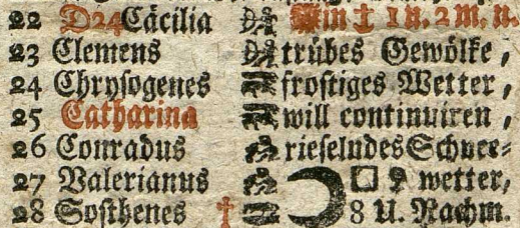 22 D24 Cäcilia in 1 u. 2 m. n.
23 Clemens trübes Gewölke,
24 Chrysogenes frostiges Wetter,
25 Catharina will continuiren,
26 Conradus rieselndes Schnee-
27 Valerianus wetter,
28 Sosthenes † 8 U. Nachm.